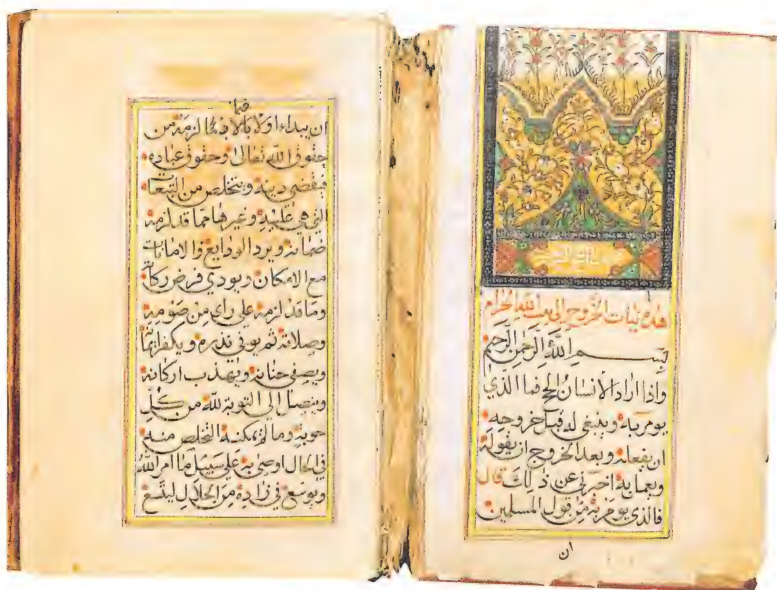 هذه نيات الخروج إلى بيت الله الحرام
بسم الله الرحمن الرحيم
واذا اراد الانسان الحج فما الذي
يومر به وينبغي له قبل خروجه
ان يفعله وبعد الخروج ان يقوله
ويعمل به اخبرني عن ذلك قال
فالذي يومر به من قول المسلمين
ان
ان يبداء اولا بالا بد مما لزمه من
حقوق الله تعالى وحقوق عباده
فيقضي دينه ويتخلص من التبعات
التي هي عليه وغيرها مما قد لزمه
ضمانه ويرد الودايع والامانات
مع الامكان ويودي فرض زكاته
وما قد لزمه على راي من صومه
وصلاته ثم يوفي نذره ويكفر ايمانه
ويصفي جنانه ويهذب اركانه
وينصل الى التوبة لله من كل
حوبة وما لم يمكنه التخلص منه
في الحال اوصى به على سبيل ما امر الله
ويوسع في زاده من الحلال ليتسع